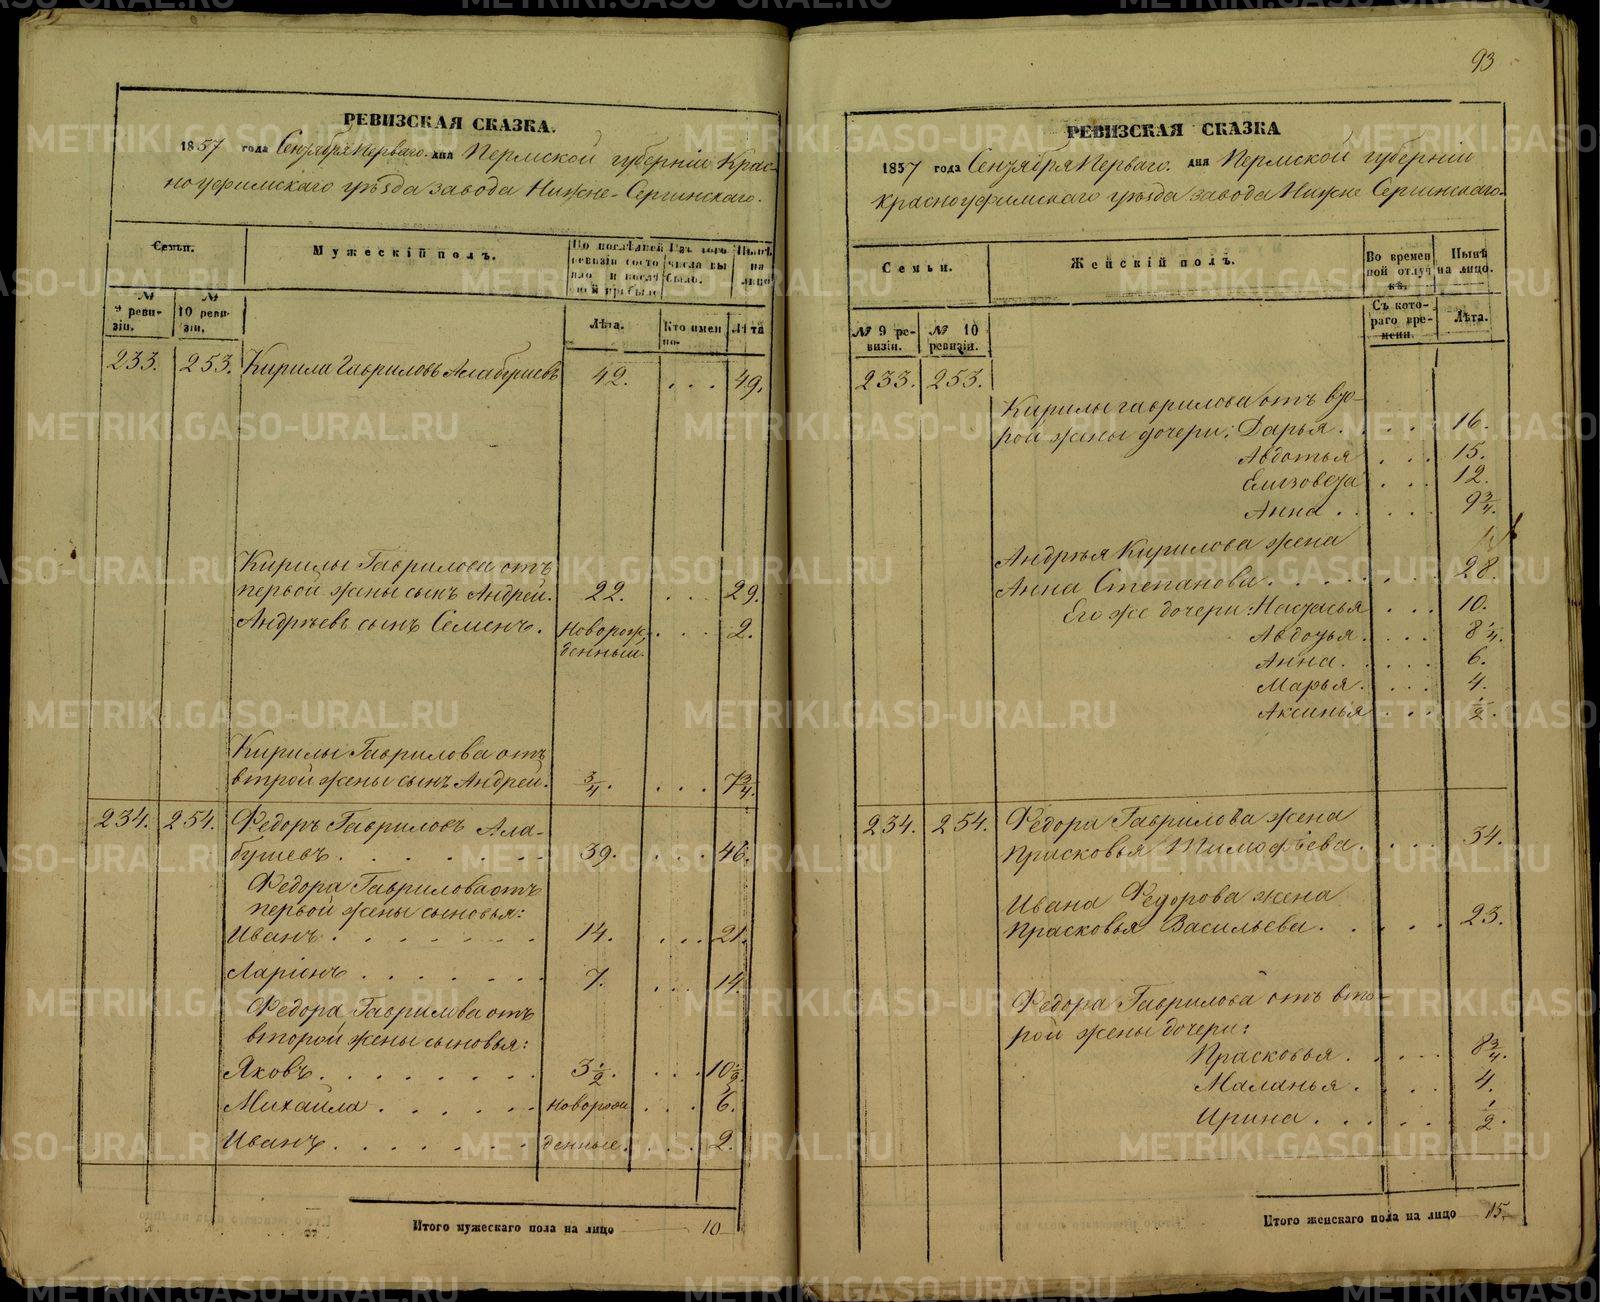 РЕВИЗСКАЯ СКАЗКА.
1857 года Сентября перваго дня Пермской губерніи Крас-
ноуфимскаго уѣзда завода Нижне-Сергинскаго.
Семьи.
Мужескій полъ.
По послѣдней ревизіи состояло и послѣ оной прибыло
Изъ того числа выбыло.
Нынѣ на лицо
№ 9 ревизіи.
№ 10 ревизіи.
Лѣта.
Кто именно.
Лѣта
233. 253. Кирила Гавриловъ Алабушевъ 42. . . . 49.
Кирилы Гаврилова отъ
первой жены сынъ Андрей. 22. . . . 29.
Андреевъ сынъ Семенъ. Новорож- . . . 2.
денный.
Кирилы Гаврилова отъ
второй жены сынъ Андрей. 3/4. . . . 7 3/4.
234. 254. Федоръ Гавриловъ Ала-
бушевъ . . . . . . . 39. . . . 46.
Федора Гаврилова отъ
первой жены сыновья:
Иванъ . . . . . . . 14. . . . 21.
Ларіонъ . . . . . . 7. . . . 14.
Федора Гаврилова отъ
второй жены сыновья:
Яковъ . . . . . . . 3 1/2. . . . 10 1/2.
Михайла . . . . . . новорож . . . 6.
Иванъ . . . . . . . денные . . . 2.
Итого мужескаго пола на лицо 10
93
РЕВИЗСКАЯ СКАЗКА
1857 года Сентября перваго. дня Пермской губерніи
Красноуфимскаго уѣзда завода Нижне Сергинскаго.
Семьи.
Женскій полъ.
Во временной отлучкѣ.
Нынѣ на лицо.
№ 9 ревизіи.
№ 10 ревизіи.
Съ котораго времени.
Лѣта.
233. 253.
Кирилы Гаврилова отъ вто-
рой жены дочери: Дарья . . . . 16.
Авдотья . . . 15.
Елизовета . . . 12.
Анна . . . . . 9 3/4.
Андрея Кирилова жена
Анна Степанова . . . . . . . 28.
Его же дочери: Настасья . . . 10.
Авдотья . . . . 8 1/4.
Анна . . . . . 6.
Марья . . . . 4.
Аксинья . . . 1/2.
234. 254. Федора Гаврилова жена
Прасковья Тимофѣева . . . . 34.
Ивана Федорова жена
Прасковья Васильева . . . . . 23.
Федора Гаврилова отъ вто-
рой жены дочери:
Прасковья . . . . . 8 3/4.
Маланья . . . . 4.
Ирина . . . . . . 1/2.
Итого женскаго пола на лицо 15.
METRIKI.GASO-URAL.RU